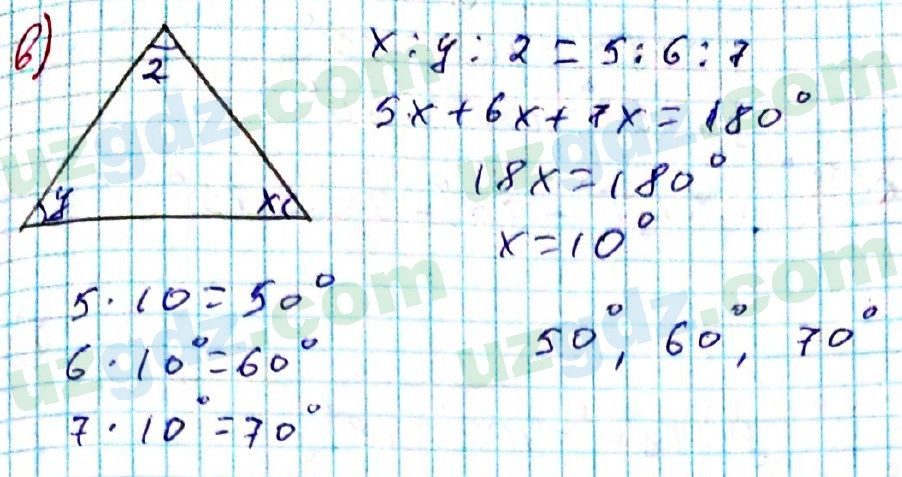 в)
2
y
x
x : y : 2 = 5 : 6 : 7
5x + 6x + 7x = 180°
18x = 180°
x = 10°
5 · 10 = 50°
6 · 10° = 60°
7 · 10° = 70°
50°, 60°, 70°
uzgdz.com
uzgdz.com
uzgdz.com
uzgdz.com